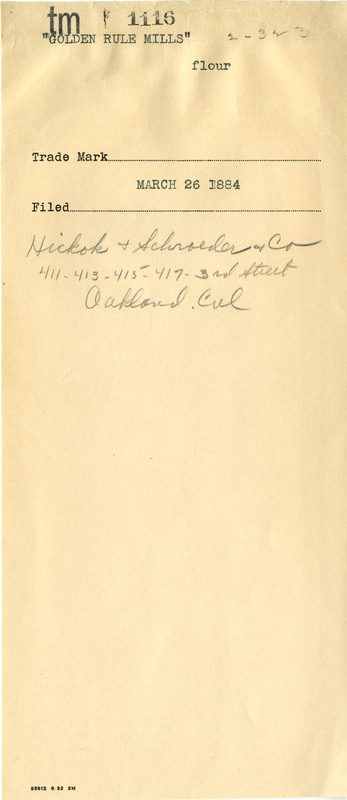 tm 1116
"GOLDEN RULE MILLS"
flour
Trade Mark
MARCH 26 1884
Filed
Hickok + Schroeder + Co
411-413-415-417-3rd Street
Oakland. Cal
95912 6-32 2M